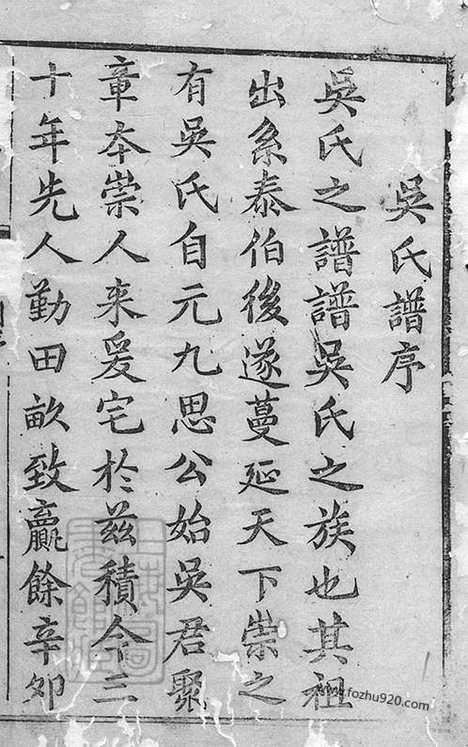 吳氏譜序
吳氏之譜譜吳氏之族也其祖
出系泰伯後遂蔓延天下崇之
有吳氏自元九思公始吳君聚
章本崇人來爰宅於茲積今三
十年先人勤田畝致贏餘辛卯
www.fozhu920.com